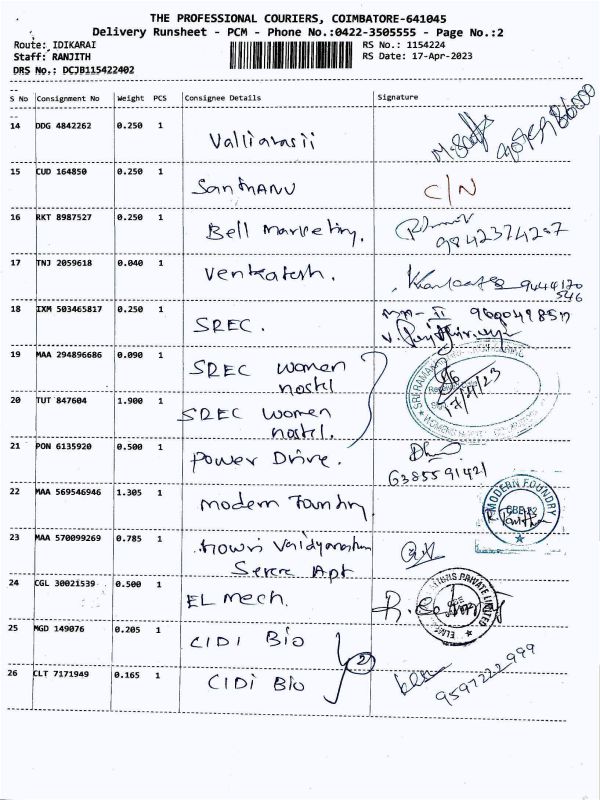 THE PROFESSIONAL COURIERS, COIMBATORE-641045
Delivery Runsheet - PCM - Phone No.:0422-3505555 - Page No.:2
Route: IDIKARAI
RS No.: 1154224
Staff: RANJITH
RS Date: 17-Apr-2023
DRS No.: DCJB115422402
S No Consignment No Weight PCS Consignee Details Signature
14 DDG 4842262 0.250 1 Valliarasii
15 CUD 164850 0.250 1 Santhanu C/N
16 RKT 8987527 0.250 1 Bell marketing.
9842374287
17 TNJ 2059618 0.040 1 Venkatesh. 9444170
546
18 IXM 503465817 0.250 1 SREC.
19 MAA 294896686 0.090 1 SREC women
hostel
17/4/23
20 TUT 847604 1.900 1 SREC women
hostel.
21 PON 6135920 0.500 1 Power Drive.
6385591421
22 MAA 569546946 1.305 1 modern Foundry.
MODERN FOUNDRY
23 MAA 570099269 0.785 1
Apt
24 CGL 30021539 0.500 1 EL mech.
PRIVATE LIMITED
25 MGD 149076 0.205 1 CIDI BIO
2
26 CLT 7171949 0.165 1 CIDI BIO
9597222999